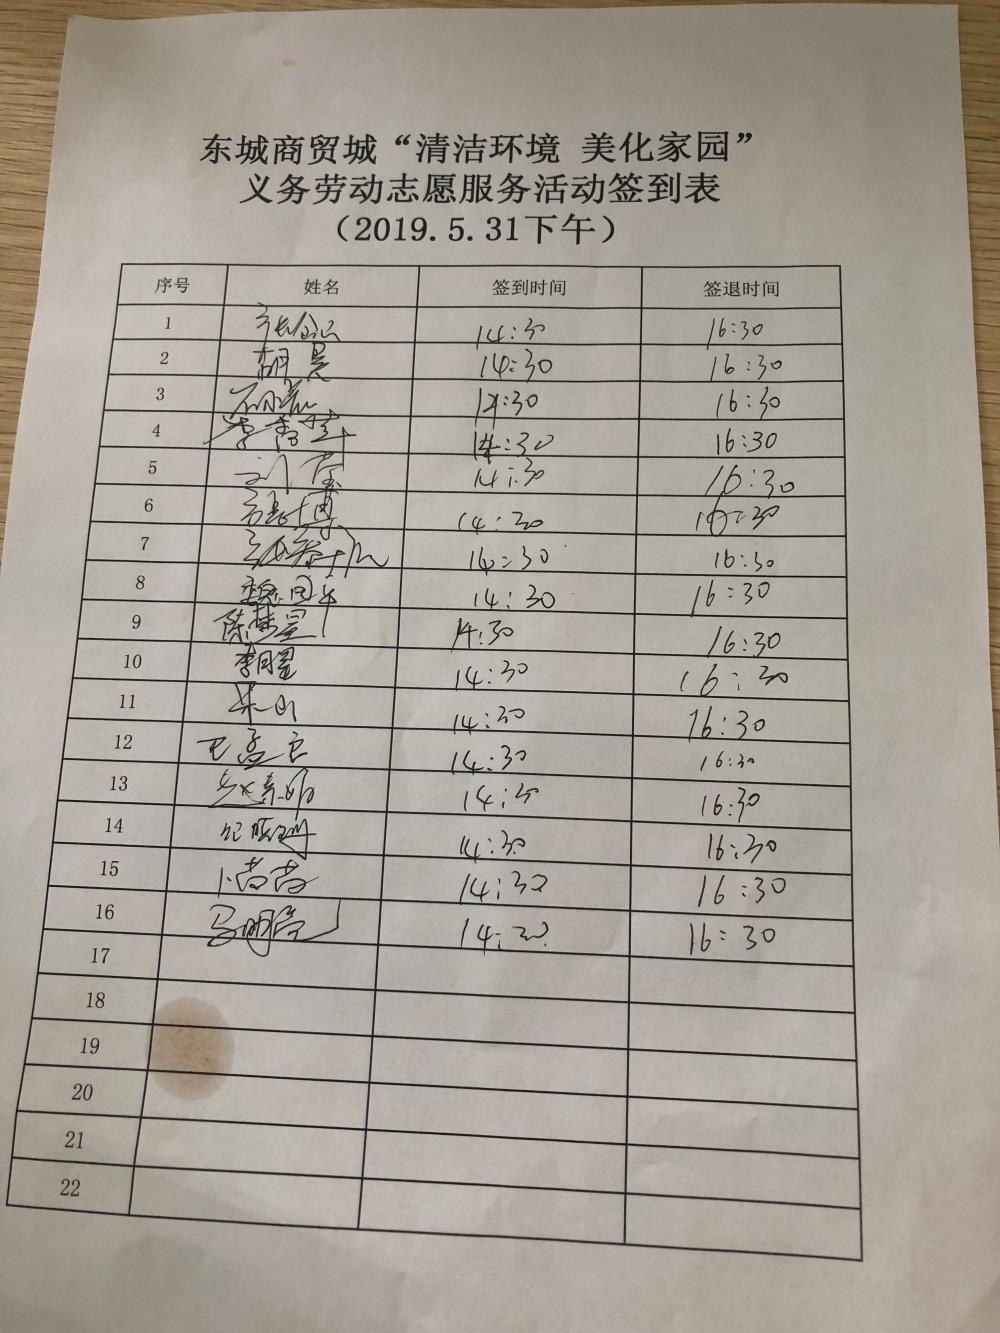 东城商贸城“清洁环境 美化家园”
义务劳动志愿服务活动签到表
（2019.5.31下午）
序号 姓名 签到时间 签退时间
1 14:30 16:30
2 胡昊 14:30 16:30
3 14:30 16:30
4 14:30 16:30
5 14:30 16:30
6 14:30 16:30
7 14:30 16:30
8 14:30 16:30
9 陈梦星 14:30 16:30
10 李明星 14:30 16:30
11 朱山 14:30 16:30
12 14:30 16:30
13 14:30 16:30
14 14:30 16:30
15 卜苗苗 14:30 16:30
16 14:30 16:30
17
18
19
20
21
22